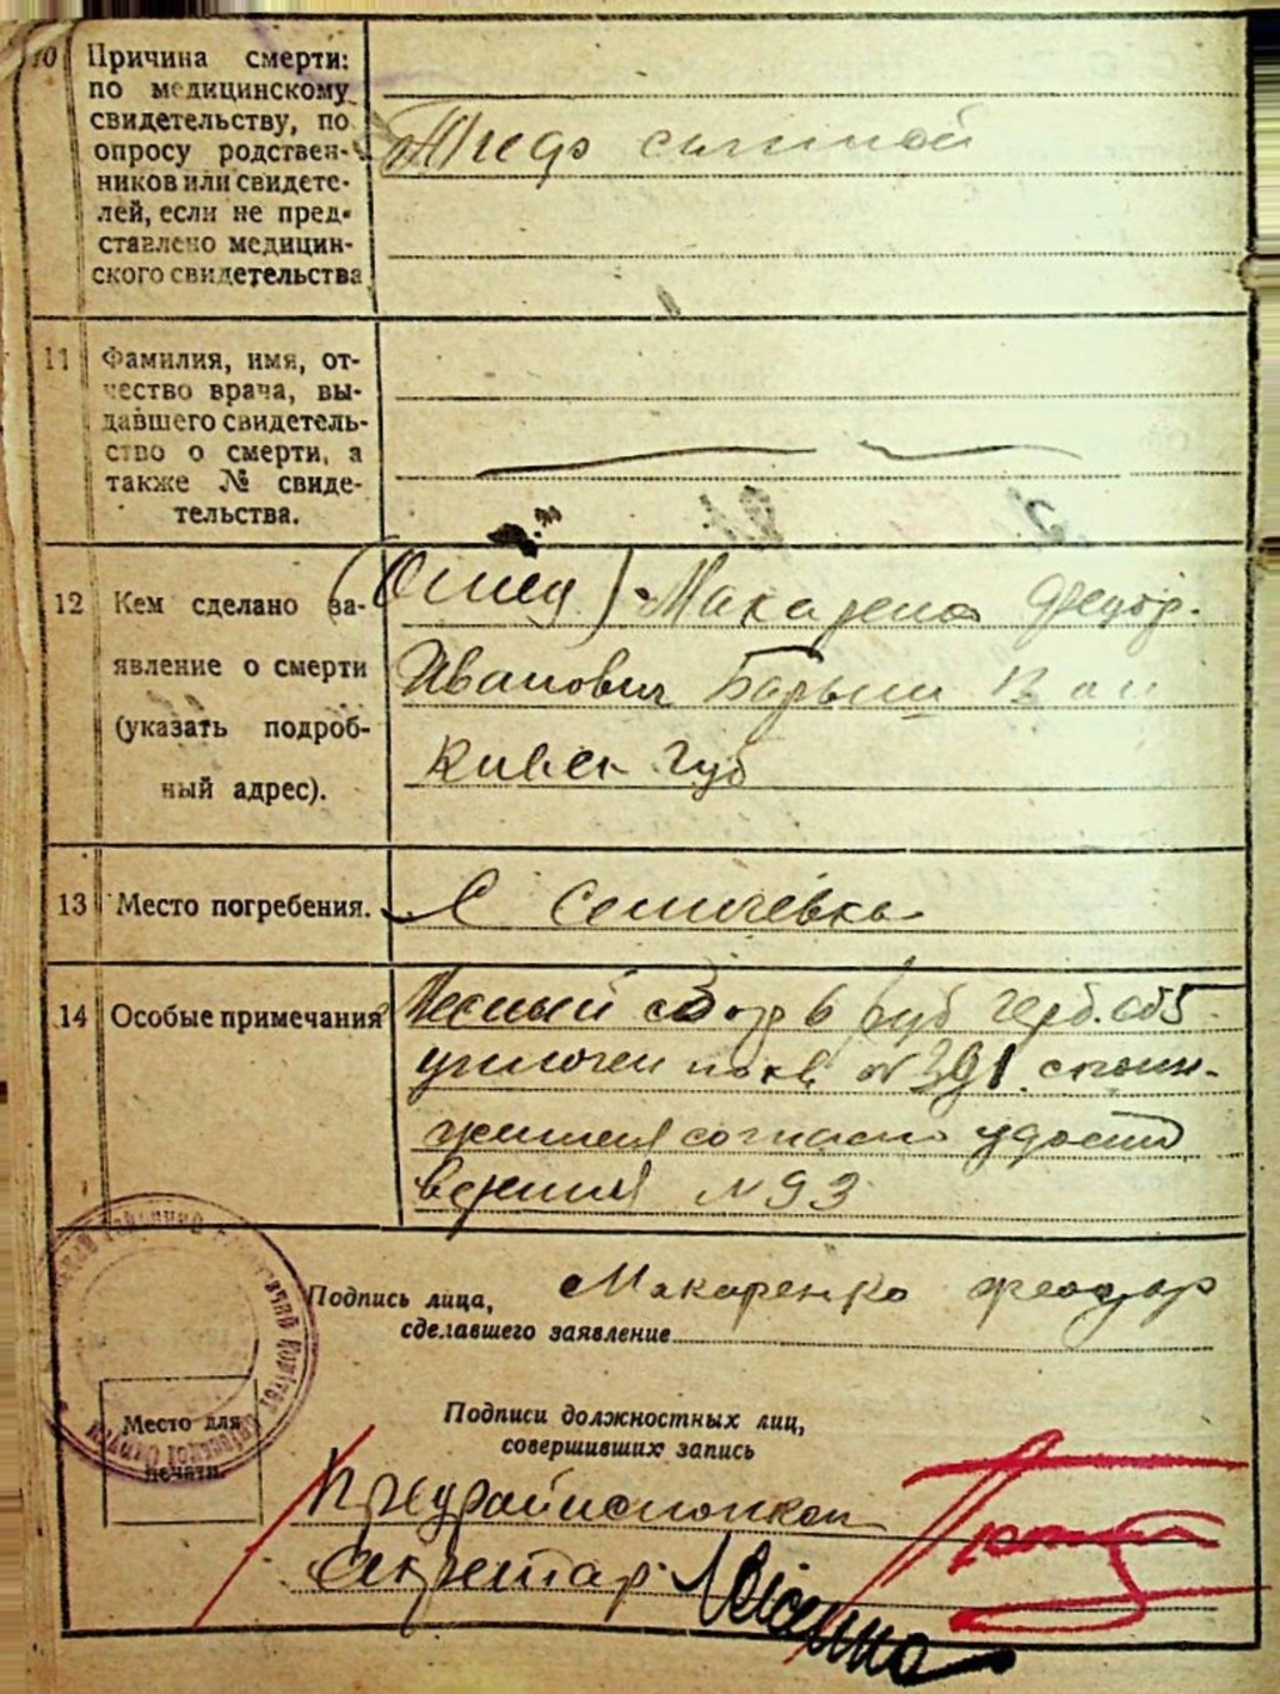 10 Причина смерти:
по медицинскому
свидетельству, по
опросу родствен-
ников или свидете-
лей, если не пред-
ставлено медицин-
ского свидетельства
Тиф сыпной
11 Фамилия, имя, от-
чество врача, вы-
давшего свидетель-
ство о смерти, а
также № свиде-
тельства.
12 Кем сделано за-
явление о смерти
(указать подроб-
ный адрес).
(Отец) Макаренко Федор
Иванович Барыш
Киевск губ
13 Место погребения.
С
14 Особые примечания
Местный сбор 6 руб герб. сб 5
уплочен по кв. № 391.
согласно удосто
верения № 93
Подпись лица,
сделавшего заявление
Макаренко Феодор
Место для
печати.
Подписи должностных лиц,
совершивших запись
Секретар